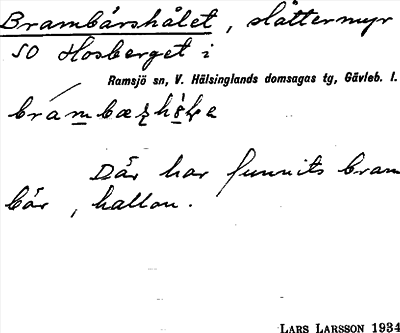 Brambärshålet, slåttermyr
SO Hosberget i
Ramsjö sn, V. Hälsinglands domsagas tg, Gävleb. l.
Där har funnits bram
bär, hallon.
LARS LARSSON 1934